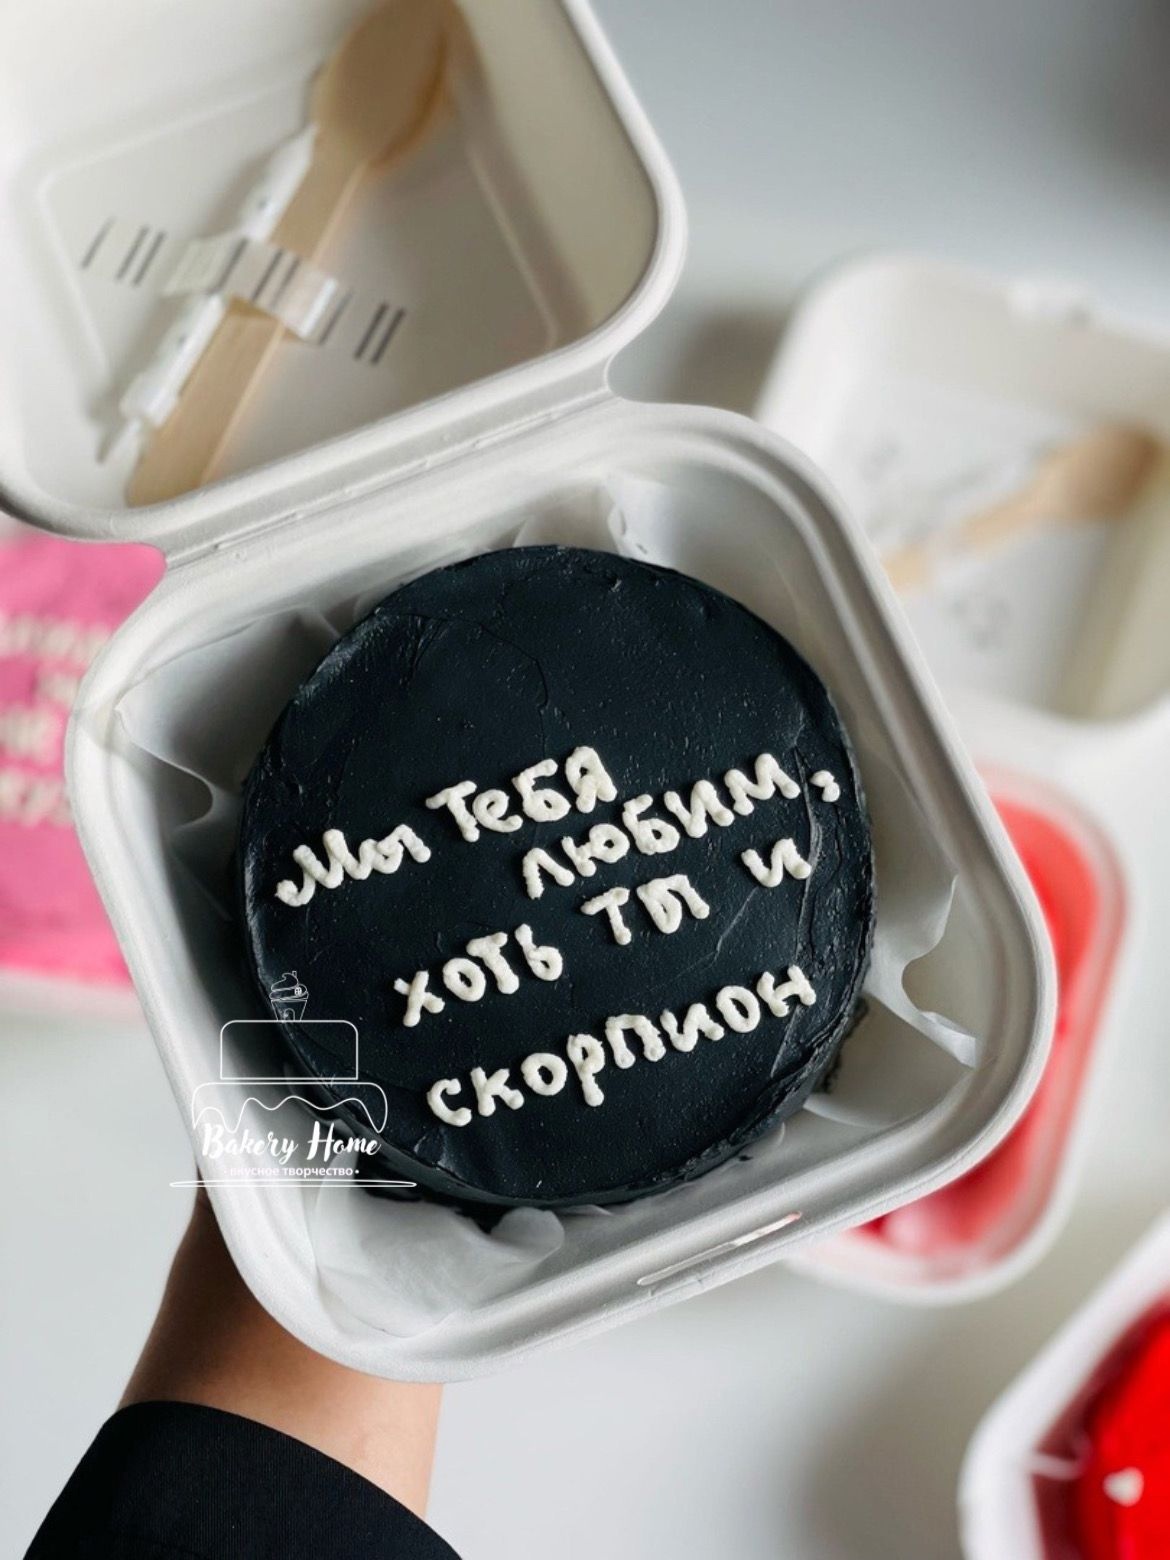 Мы тебя
любим,
хоть ты и
скорпион
Bakery Home
• вкусное творчество •